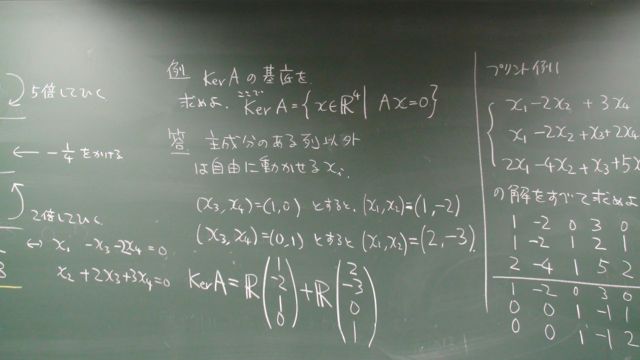 5倍してひく
← -1/4 をかける
2倍してひく
⇔ x₁ -x₃-2x₄=0
x₂+2x₃+3x₄=0
例 KerAの基底を
求めよ. ここで KerA={x∈ℝ⁴| Ax=0}
答 主成分のある列以外
は自由に動かせる x₁.
(x₃,x₄)=(1,0) とすると, (x₁,x₂)=(1,-2)
(x₃,x₄)=(0,1) とすると (x₁,x₂)=(2,-3).
KerA=ℝ(1 -2 1 0)+ℝ(2 -3 0 1)
プリント例1
x₁-2x₂ +3x₄
x₁-2x₂+x₃+2x₄
2x₁-4x₂+x₃+5x
の解をすべて求めよ
1 -2 0 3 0
1 -2 1 2 1
2 -4 1 5 2
1 -2 0 3 0
0 0 1 -1 1
0 0 1 -1 2